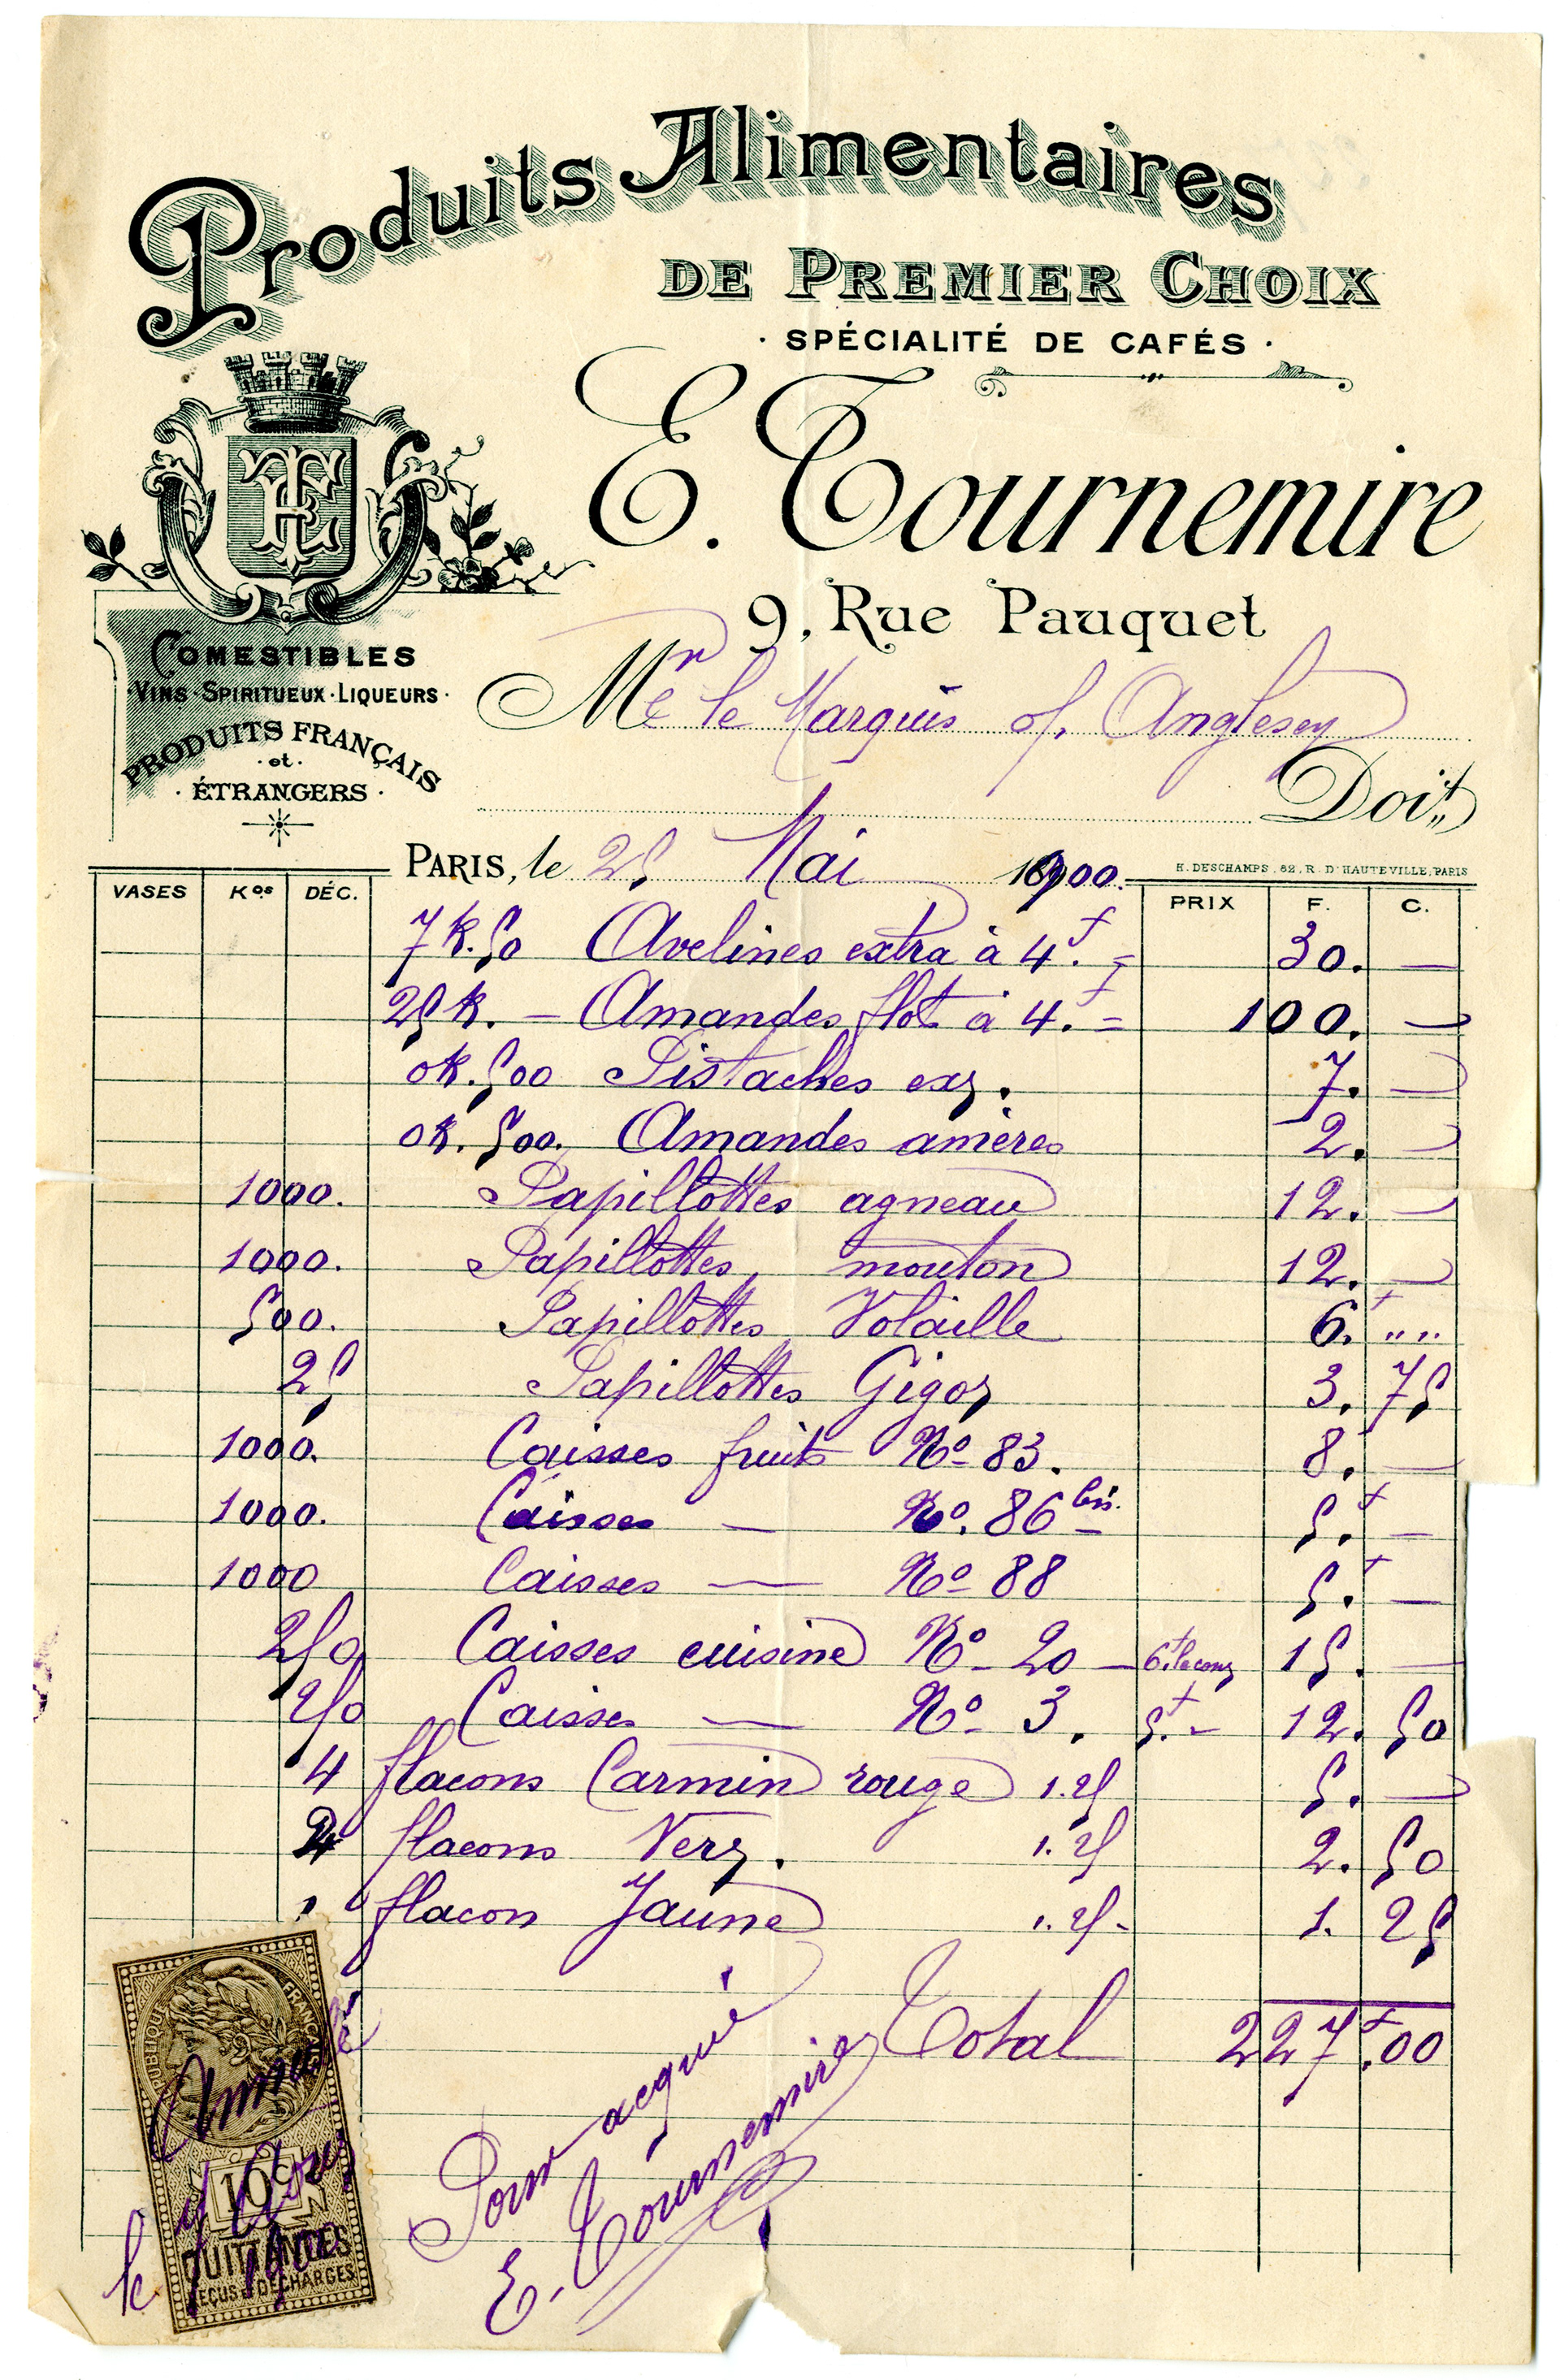 Produits Alimentaires
DE PREMIER CHOIX
· SPÉCIALITÉ DE CAFÉS ·
E. Tournemire
9, Rue Pauquet
TE
COMESTIBLES
· VINS · SPIRITUEUX · LIQUEURS ·
PRODUITS FRANÇAIS
· et ·
· ÉTRANGERS ·
Mr le Marquis of Anglesey
Doit
PARIS, le 25 Mai 1900.
H. DESCHAMPS, 82, R. D'HAUTEVILLE, PARIS
VASES Kos DÉC. PRIX F. C.
7 k. 50 Avelines extra à 4.f = 30. —
25 k. — Amandes flot à 4.f = 100. —
0k. 500 Pistaches ext. 7. —
0k. 500. Amandes amères 2. —
1000. Papillottes agneau 12. —
1000. Papillottes mouton 12. —
500. Papillottes Volaille 6. " "
25 Papillottes Gigot 3. 75
1000. Caisses fruits No 83. 8. —
1000. Caisses — No. 86 bis. 5.f —
1000 Caisses — No 88 5.f —
250 Caisses cuisine No 20 — 6f 15. —
250 Caisses — No 3. 5.f - 12. 50
4 flacons Carmin rouge 1.25 5. —
2 flacons Vert. 1.25 2. 50
1 flacon Jaune 1.25 - 1. 25
Total 227f.00
Pour acquit
E. Tournemire
RÉPUBLIQUE FRANÇAISE
10c
QUITTANCES
REÇUS & DÉCHARGES
Annulé
le
1900